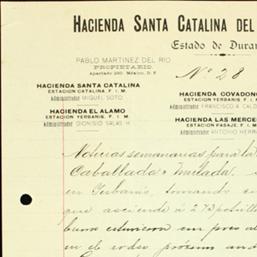 HACIENDA SANTA CATALINA DEL
Estado de Duran
PABLO MARTINEZ DEL RIO
PROPIETARIO.
Apartado 280. México, D. F.
Nº 28
HACIENDA SANTA CATALINA
ESTACION CATALINA F. I. M.
Administrador MIGUEL SOTO.
HACIENDA COVADONG
ESTACION YERBANIS, F. I. M.
Administrador FRANCISCO A. CALD
HACIENDA EL ALAMO
ESTACION YERBANIS, F. I. M.
Administrador DIONISIO SALAS H
HACIENDA LAS MERCE
ESTACION PASAJE, F. I. M.
Administrador ANTONIO HERR
Noticias semanarias para la
Caballada y mulada.
en Yerbanis, tomando
que asciende á 273
en el rodeo próximo